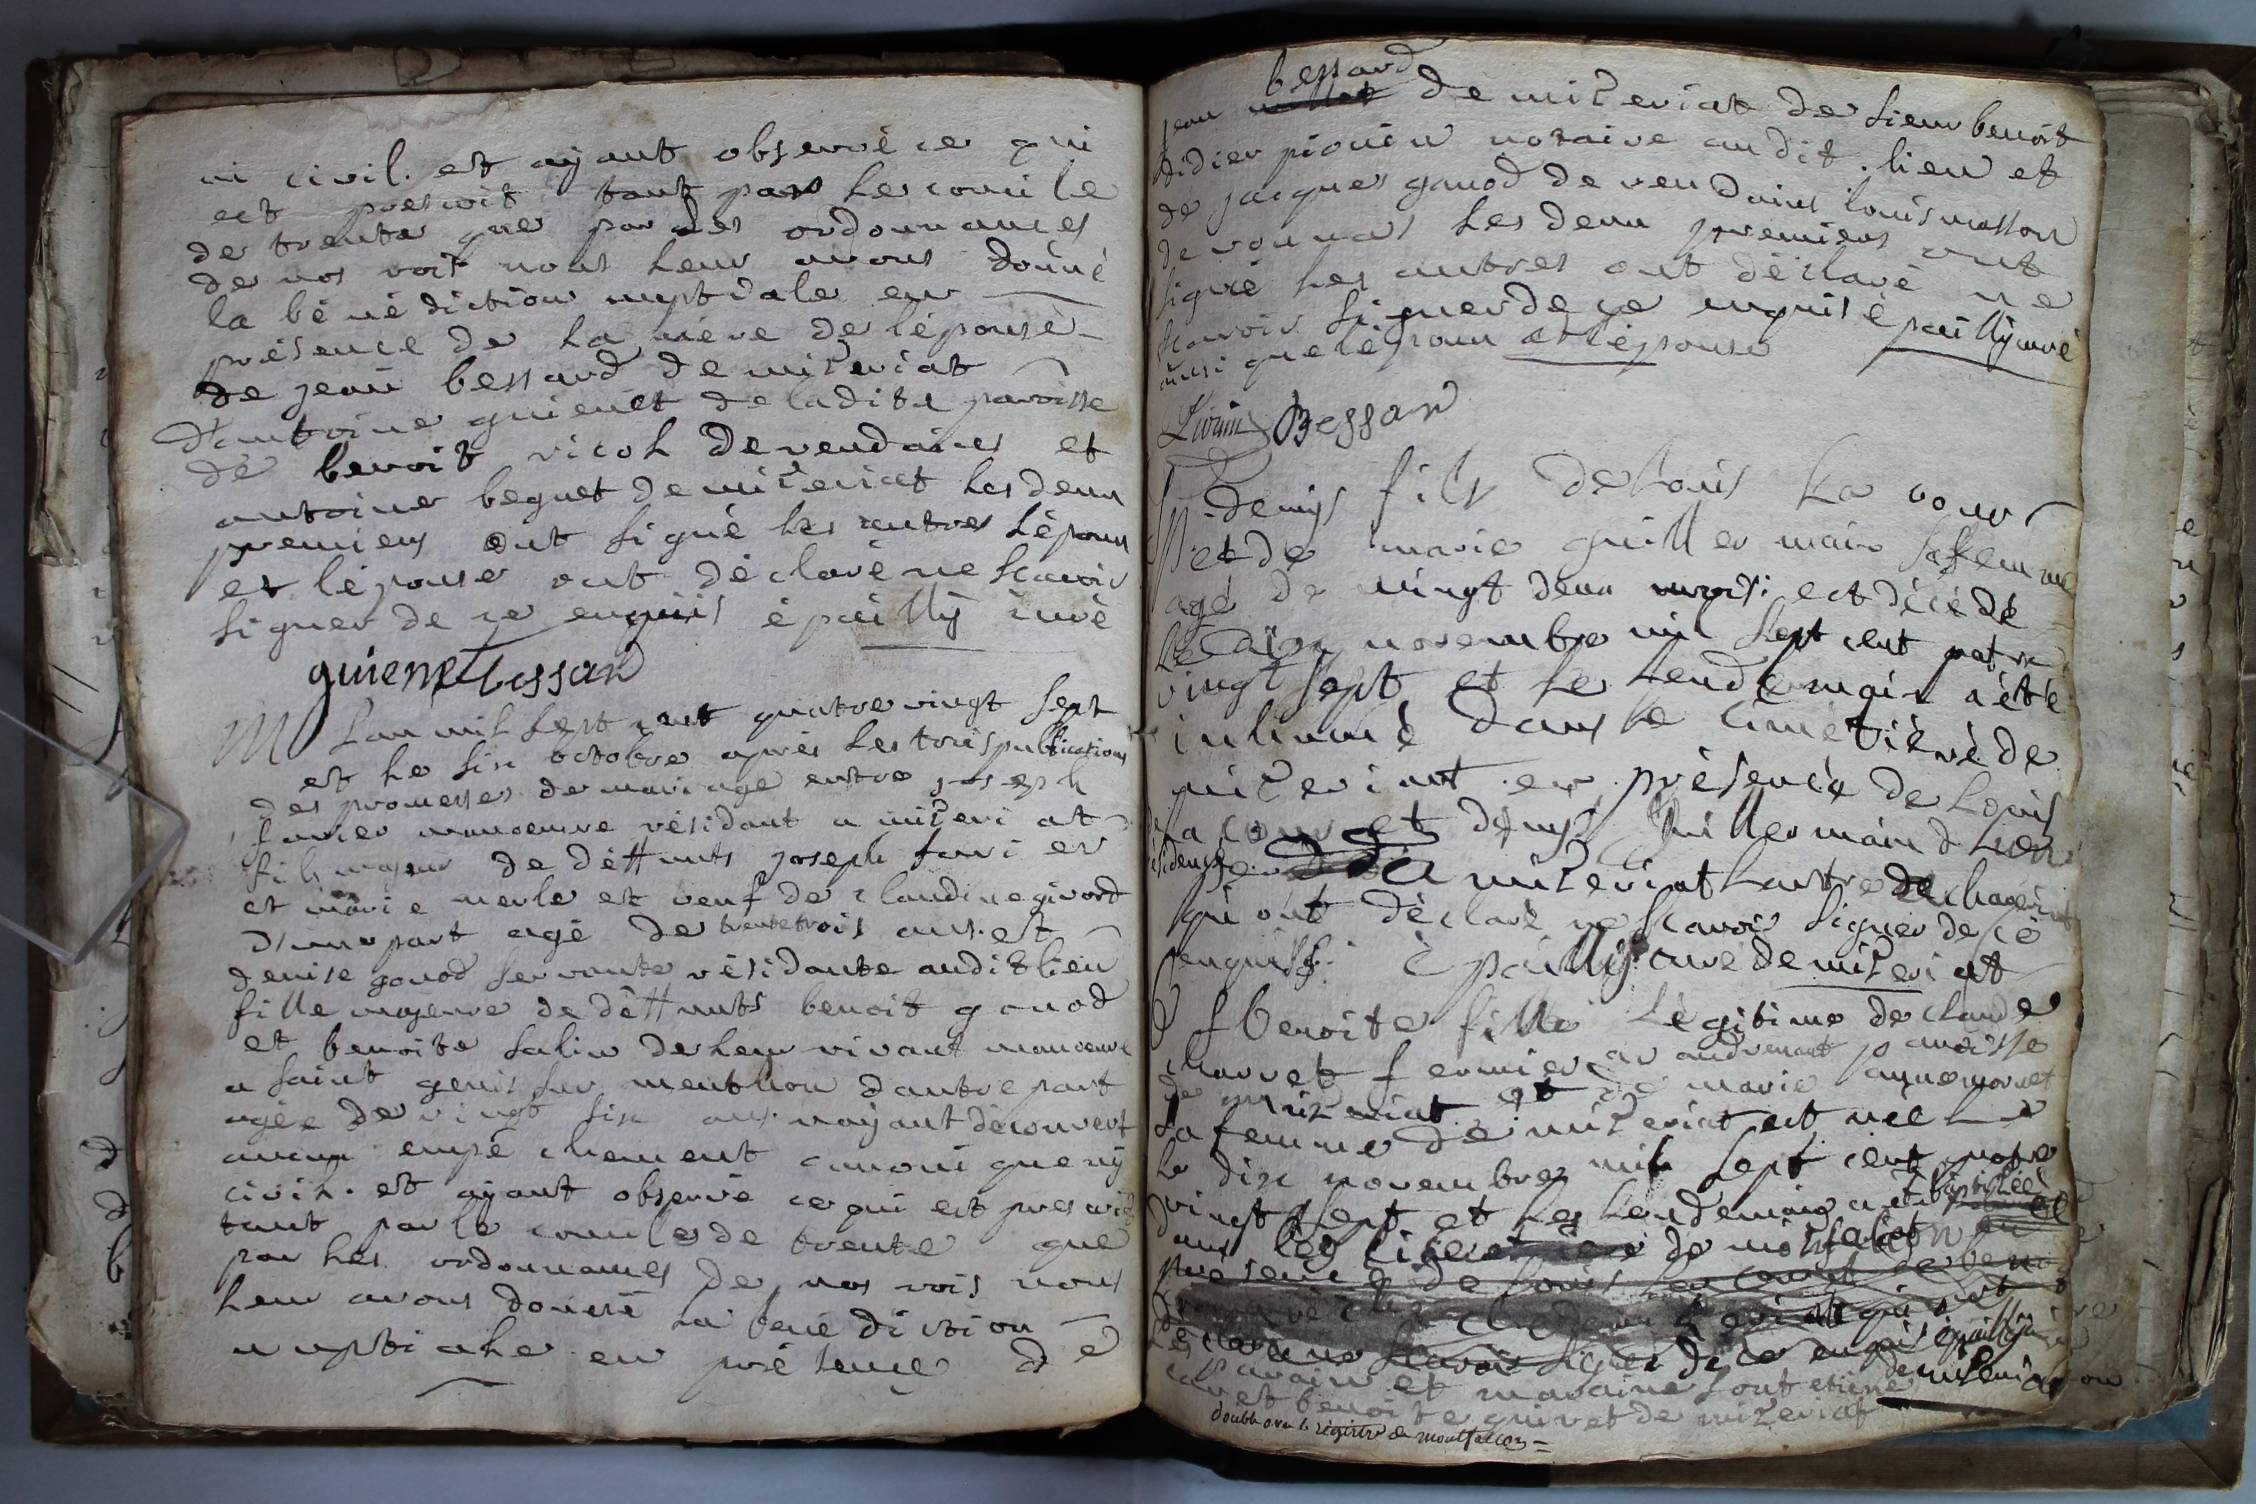 ni civil. et ayant observé ce qui
est prescrit tant par les concile
de trente que par des ordonnances
de nos rois nous leur avons donné
la bénédiction nuptiale en
présence de la mère de l'épouse
de jean bessard de miseriat
d'antoine guienet de ladite paroisse
de benoit vicoh de vendains et
antoine beguet de miseriat les deux
premiers ont signé les autres l'époux
et l'épouse ont déclaré ne scavoir
signer de ce enquis é pailly curé
guienet bessard
M Lan mil sept cent quatre vingt sept
et le six octobre après les trois publications
des promesses de mariage entre joseph
favier manoeuvre résidant a miseriat
fils majeur de déffunts joseph favier
et marie merle et veuf de claudine givord
d'une part agé de trente trois ans. et
denise gonod servante résidante audit lieu
fille majeure de déffunts benoit gonod
et benoite salin de leur vivant manoeuvre
a saint genis sur menthon d'autre part
agée de vingt six ans. n'ayant découvert
aucun empéchement canonique ny
civil. et ayant observé ce qui est prescrit
tant par le conciles de trente que
par les ordonnances de nos rois nous
leur avons donné la bénédiction
nuptiale en présence de
bessard
jean de miseriat de sieur benoit
didier pionin notaire audit. lieu et
de jacques gonod de vendains louis masson
de vonnas les deux premiers ont
signé les autres ont déclaré ne
scavoir signer de ce enquis é pailly curé
ainsi que l'époux et l'épouse
Bessard
denis fils de louis la cour
et de marie guillermain sa femme
agé de vingt deux mois. est décédé
le dix novembre mil sept cent quatre
vingt sept et le lendemain a été
inhumé dans le cimetière de
miseriat en présence de louis
la cour et denis guillermain d l'un
résidence a miseriat l'autre de chaveriat
qui ont déclaré ne scavoir signer de ce
enquis. é pailly curé de miseriat
benoite fille légitime de claude
charvet fermier en audrenant paroisse
de miseriat et de marie anne mornet
sa femme de miseriat est née le
le dix novembre mil sept cent quatre
vingt sept et les lendemain a été baptisée
dans de montfalcon
présence de louis
scavoir signer de ce enquis é pailly curé
de miseriat
parain et maraine sont etiene
et benoite guivet de miseriat
double avec le régistre de montfalcon =